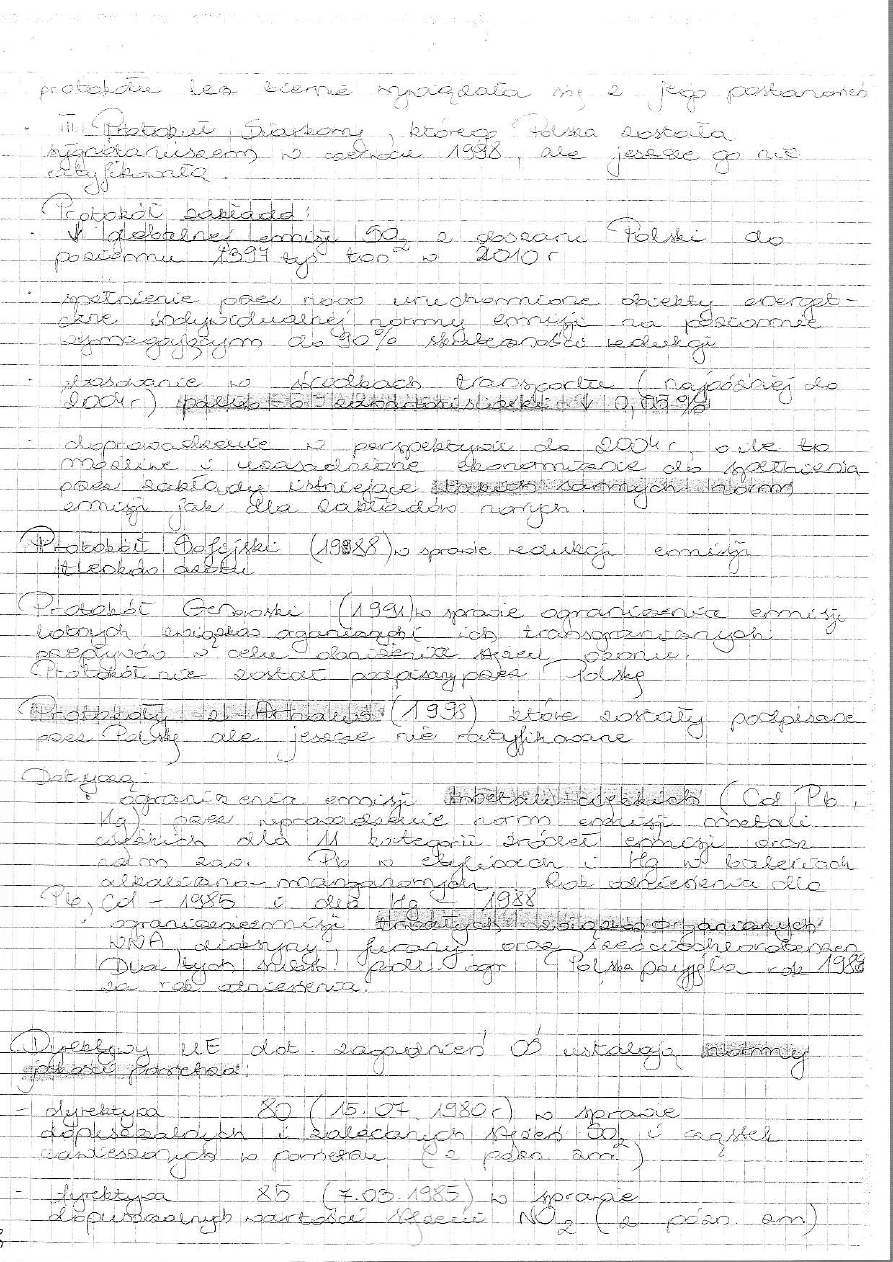 protokołu lecz biernie wywiązała się z jego postanowień
· III Protokół Siarkowy, którego Polska została
sygnatariuszem w czerwcu 1998, ale jeszcze go nie
ratyfikowała.
Protokół zakłada:
· ↓ globalnej emisji SO2 z obszaru Polski do
poziomu 1397 tys ton w 2010 r
· spełnienie przez nowo uruchomione obiekty energet-
czne indywidualnej normy emisji na poziomie
wymagającym do 90% skuteczności redukcji
· stosowanie w środkach transportu (najpóźniej do
2004r) paliw o zawartości siarki ↓ 0,05%
· doprowadzenie w perspektywie do 2004r, o ile to
możliwe i uzasadnione ekonomicznie do spełnienia
przez zakłady istniejące takich samych norm
emisji jak dla zakładów nowych.
Protokół Sofijski (1988) w sprawie redukcji emisji
tlenków azotu
Protokół Genewski (1991) w sprawie ograniczenia emisji
lotnych związków organicznych i ich transgranicznych
przepływów w celu obniżenia stężeń ozonu.
Protokół nie został podpisany przez Polskę
Protokoły z Arhus (1998) które zostały podpisane
przez Polskę ale jeszcze nie ratyfikowane
Dotyczą:
· ograniczenia emisji metali ciężkich (Cd, Pb,
Hg) przez wprowadzenie norm emisji metali
ciężkich dla 11 kategorii źródeł emisji oraz
norm zaw. Pb w etylinach i Hg w bateriach
alkaliczno-manganowych. Rok odniesienia dla
Pb, Cd - 1985 i dla Hg - 1988
· ograniczenie emisji trwałych związków organicznych
WWA dioksyny furany oraz sześciochlorobenzen
Dla tych subst podl. ogr Polska przyjęła rok 1988
za rok odniesienia.
Dyrektywy UE dot. zagadnień OŚ ustalają normy
jakości powietrza:
- dyrektywa 80 (15.07.1980r) w sprawie
dopuszczalnych i zalecanych stężeń SO2 i cząstek
zawieszonych w powietrzu (z późn. zm)
- dyrektywa 85 (7.03.1985) w sprawie
dopuszczalnych wartości stężenia NO2 (z późn. zm)